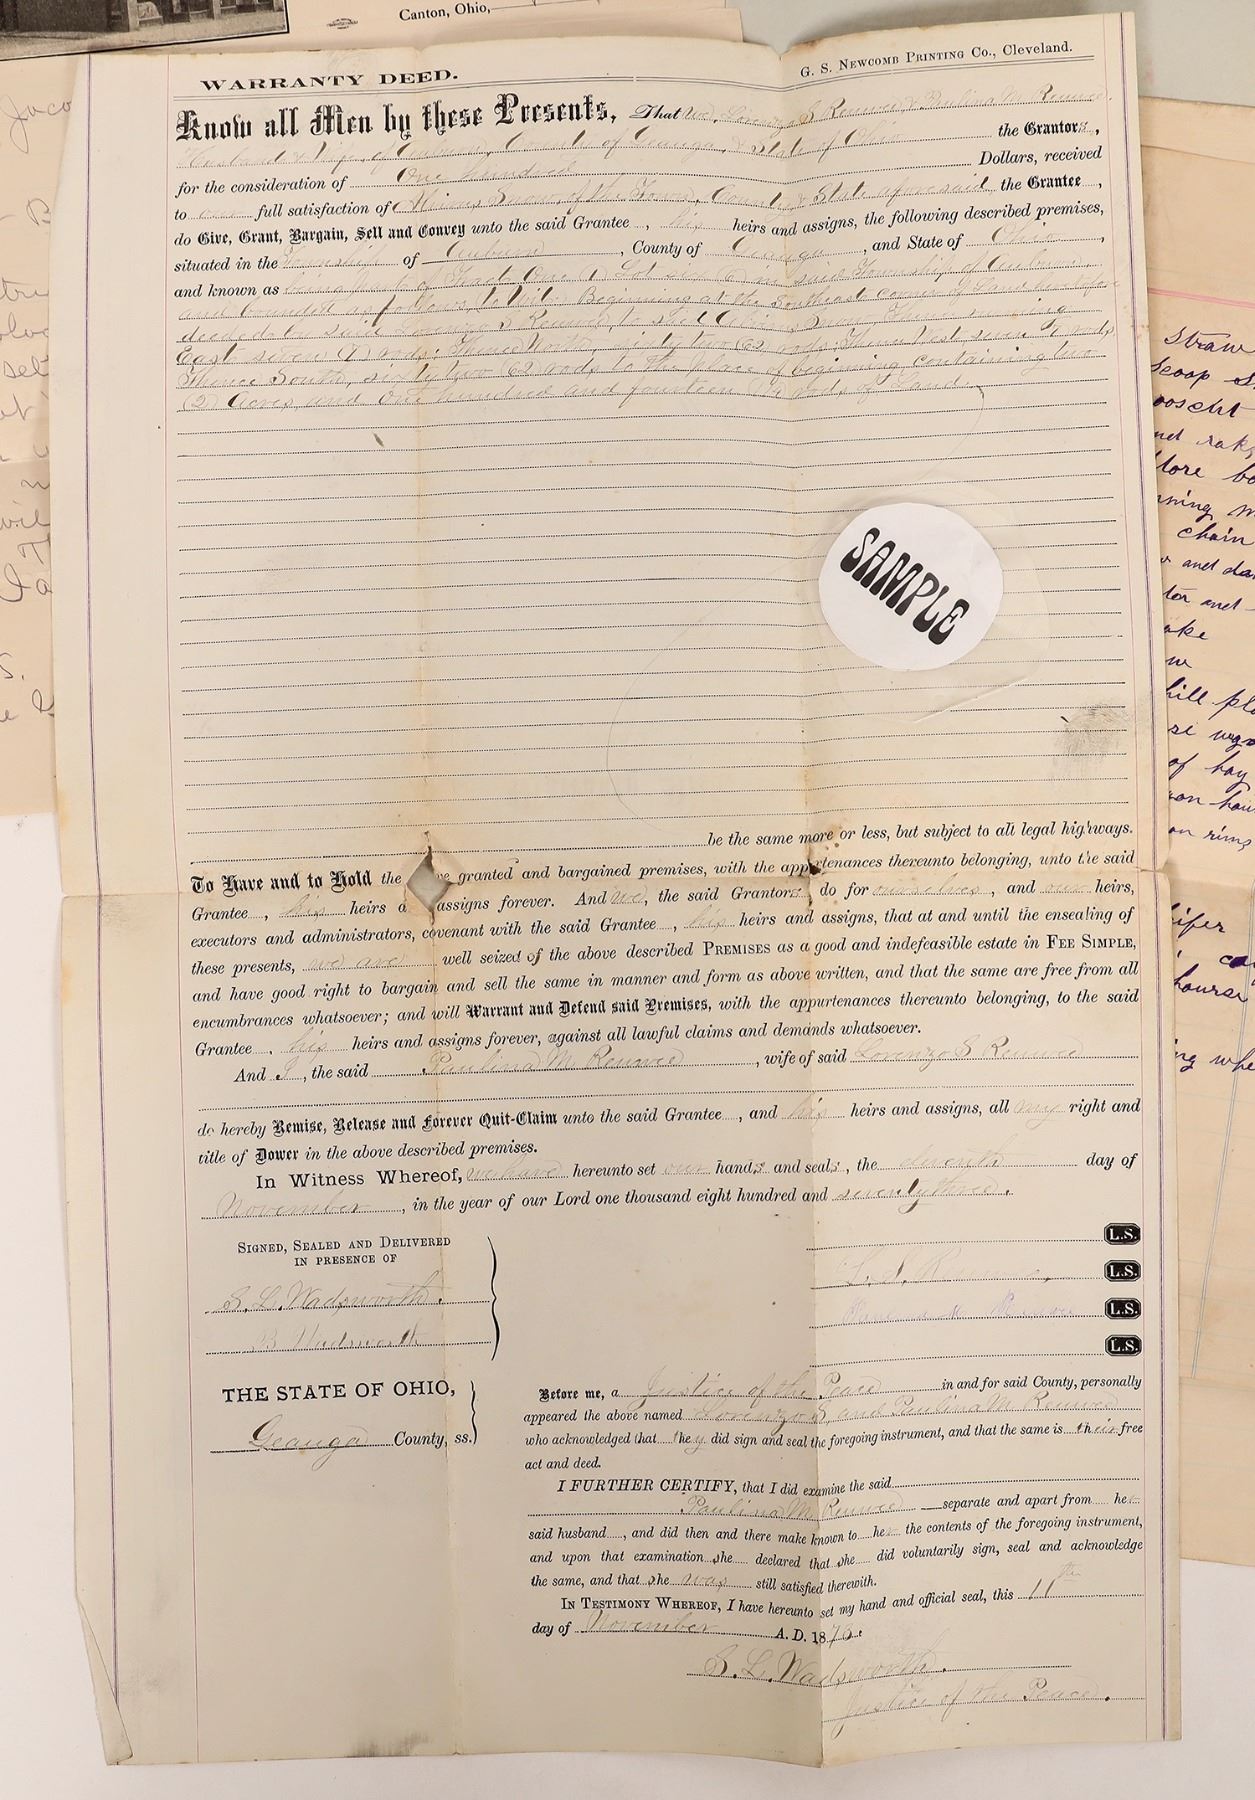 Canton, Ohio,
WARRANTY DEED.
G. S. NEWCOMB PRINTING CO., Cleveland.
Know all Men by these Presents, That We, Lorenzo S & Paulina M
Husband & Wife, of Auburn, County of Geauga, & State of Ohio the Grantors,
for the consideration of One hundred Dollars, received
to our full satisfaction of Snow, of the Town, County & State aforesaid the Grantee,
do Give, Grant, Bargain, Sell and Convey unto the said Grantee, his heirs and assigns, the following described premises,
situated in the Township of Auburn, County of Geauga, and State of Ohio,
and known as being part of Tract One (1) Lot six (6) in said Township of Auburn
and bounded as follows, (to wit:) Beginning at the Southeast corner of Land heretofore
deeded by said Lorenzo S to said Snow, Thence running
East seven (7) rods; Thence North sixty two (62) rods; Thence West seven (7) rods,
Thence South, sixty two (62) rods to the place of beginning, containing two
(2) Acres, and One hundred and fourteen (114) rods of Land.
SAMPLE
be the same more or less, but subject to all legal highways.
To Have and to Hold the granted and bargained premises, with the appurtenances thereunto belonging, unto the said
Grantee, his heirs assigns forever. And we, the said Grantors, do for ourselves, and our heirs,
executors and administrators, covenant with the said Grantee, his heirs and assigns, that at and until the ensealing of
these presents, we are well seized of the above described PREMISES as a good and indefeasible estate in FEE SIMPLE,
and have good right to bargain and sell the same in manner and form as above written, and that the same are free from all
encumbrances whatsoever; and will Warrant and Defend said Premises, with the appurtenances thereunto belonging, to the said
Grantee, his heirs and assigns forever, against all lawful claims and demands whatsoever.
And I, the said Paulina M , wife of said Lorenzo S
do hereby Remise, Release and Forever Quit-Claim unto the said Grantee, and his heirs and assigns, all my right and
title of Dower in the above described premises.
In Witness Whereof, we have hereunto set our hands and seals, the eleventh day of
November, in the year of our Lord one thousand eight hundred and seventy three.
SIGNED, SEALED AND DELIVERED
IN PRESENCE OF
L.S.
L.S.
S. L. Wadsworth.
L.S.
B Wadsworth
L.S.
THE STATE OF OHIO,
Geauga County, ss.
Before me, a Justice of the Peace in and for said County, personally
appeared the above named Lorenzo S, and Paulina M
who acknowledged that they did sign and seal the foregoing instrument, and that the same is their free
act and deed.
I FURTHER CERTIFY, that I did examine the said
Paulina M separate and apart from her
said husband, and did then and there make known to her the contents of the foregoing instrument,
and upon that examination she declared that she did voluntarily sign, seal and acknowledge
the same, and that she was still satisfied therewith.
IN TESTIMONY WHEREOF, I have hereunto set my hand and official seal, this 11th
day of November A. D. 187
S. L. Wadsworth.
Justice of the Peace.
straw
scoop
chain
and
hill
of hay